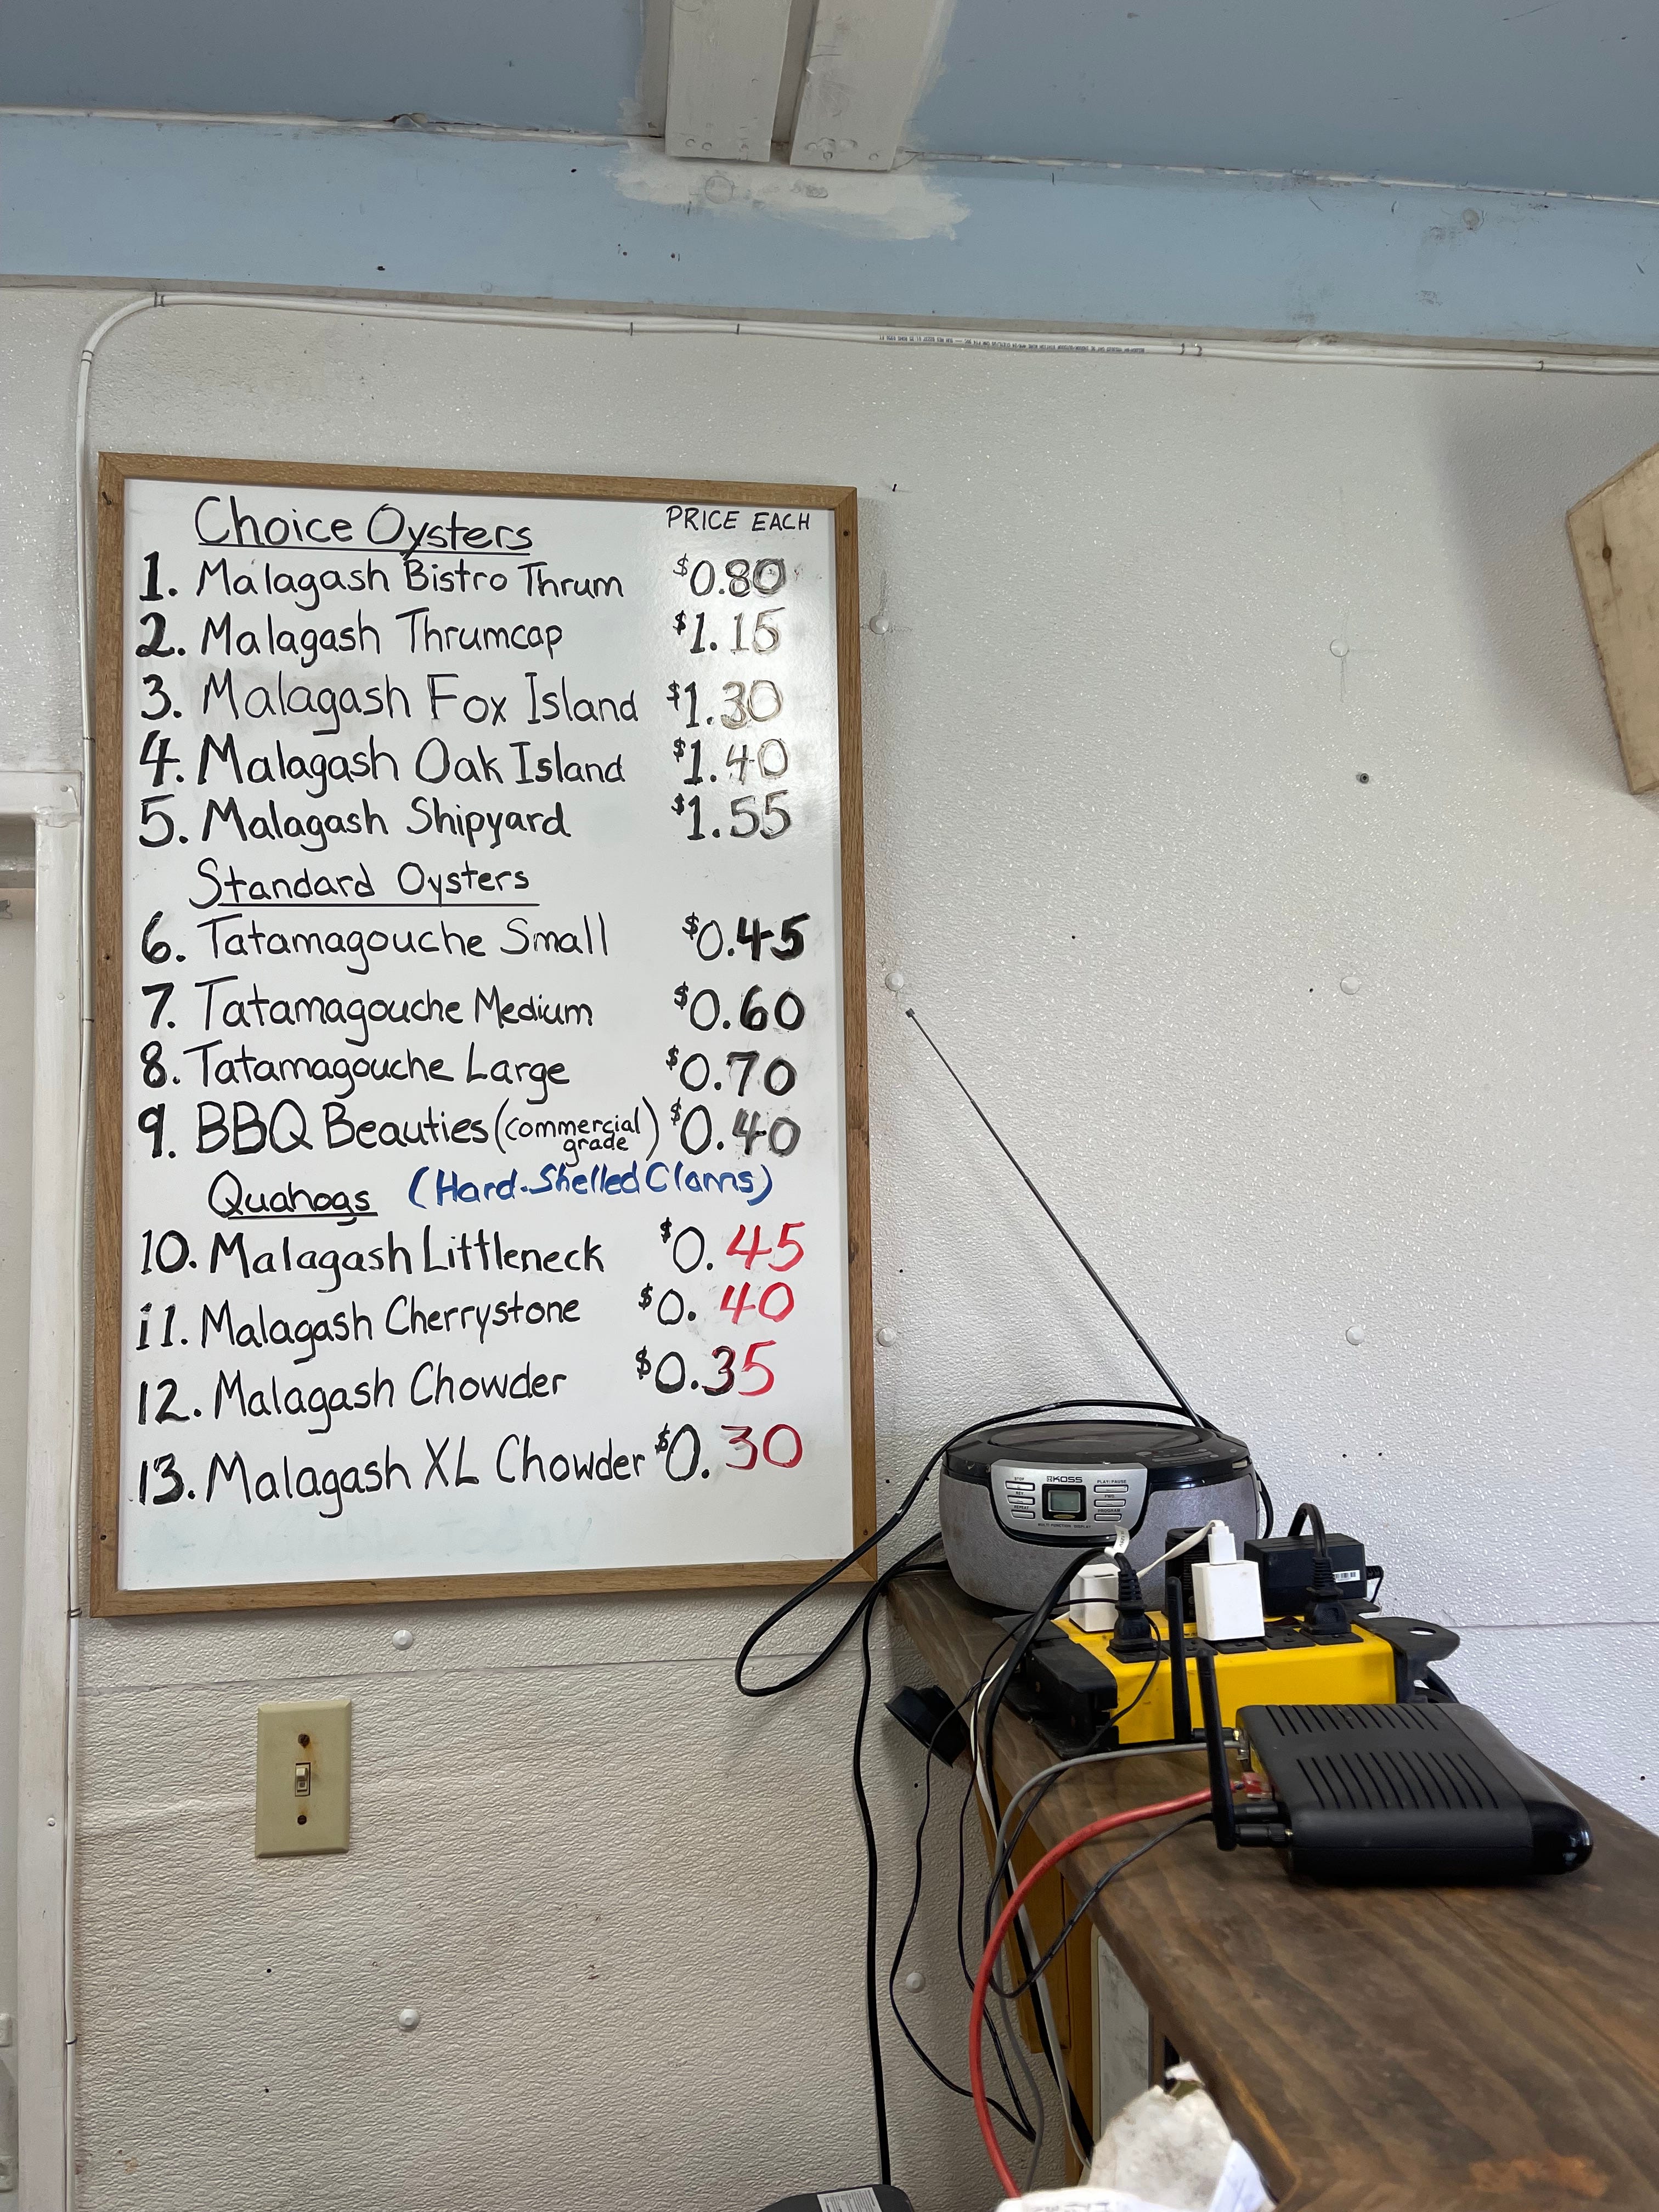 Choice Oysters PRICE EACH
1. Malagash Bistro Thrum $0.80
2. Malagash Thrumcap $1.15
3. Malagash Fox Island $1.30
4. Malagash Oak Island $1.40
5. Malagash Shipyard $1.55
Standard Oysters
6. Tatamagouche Small $0.45
7. Tatamagouche Medium $0.60
8. Tatamagouche Large $0.70
9. BBQ Beauties (commercial grade) $0.40
Quahogs (Hard-Shelled Clams)
10. Malagash Littleneck $0.45
11. Malagash Cherrystone $0.40
12. Malagash Chowder $0.35
13. Malagash XL Chowder $0.30
KOSS
STOP
PLAY/PAUSE
REPEAT
PROGRAM
MULTI FUNCTION DISPLAY